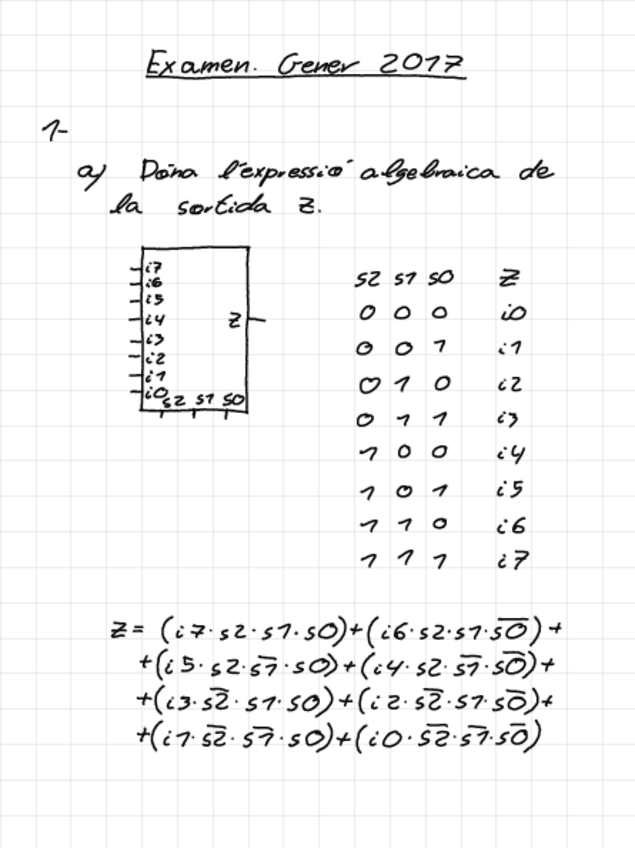 Examen. Gener 2017
1-
a) Dóna l'expressió algebraica de
la sortida Z.
i7
i6
i5
i4 Z
i3
i2
i1
i0 s2 s1 s0
s2 s1 s0 Z
0 0 0 i0
0 0 1 i1
0 1 0 i2
0 1 1 i3
1 0 0 i4
1 0 1 i5
1 1 0 i6
1 1 1 i7
Z = (i7·s2·s1·s0)+(i6·s2·s1·s̅0̅)+
+(i5·s2·s̅1̅·s0)+(i4·s2·s̅1̅·s̅0̅)+
+(i3·s̅2̅·s1·s0)+(i2·s̅2̅·s1·s̅0̅)+
+(i1·s̅2̅·s̅1̅·s0)+(i0·s̅2̅·s̅1̅·s̅0̅)